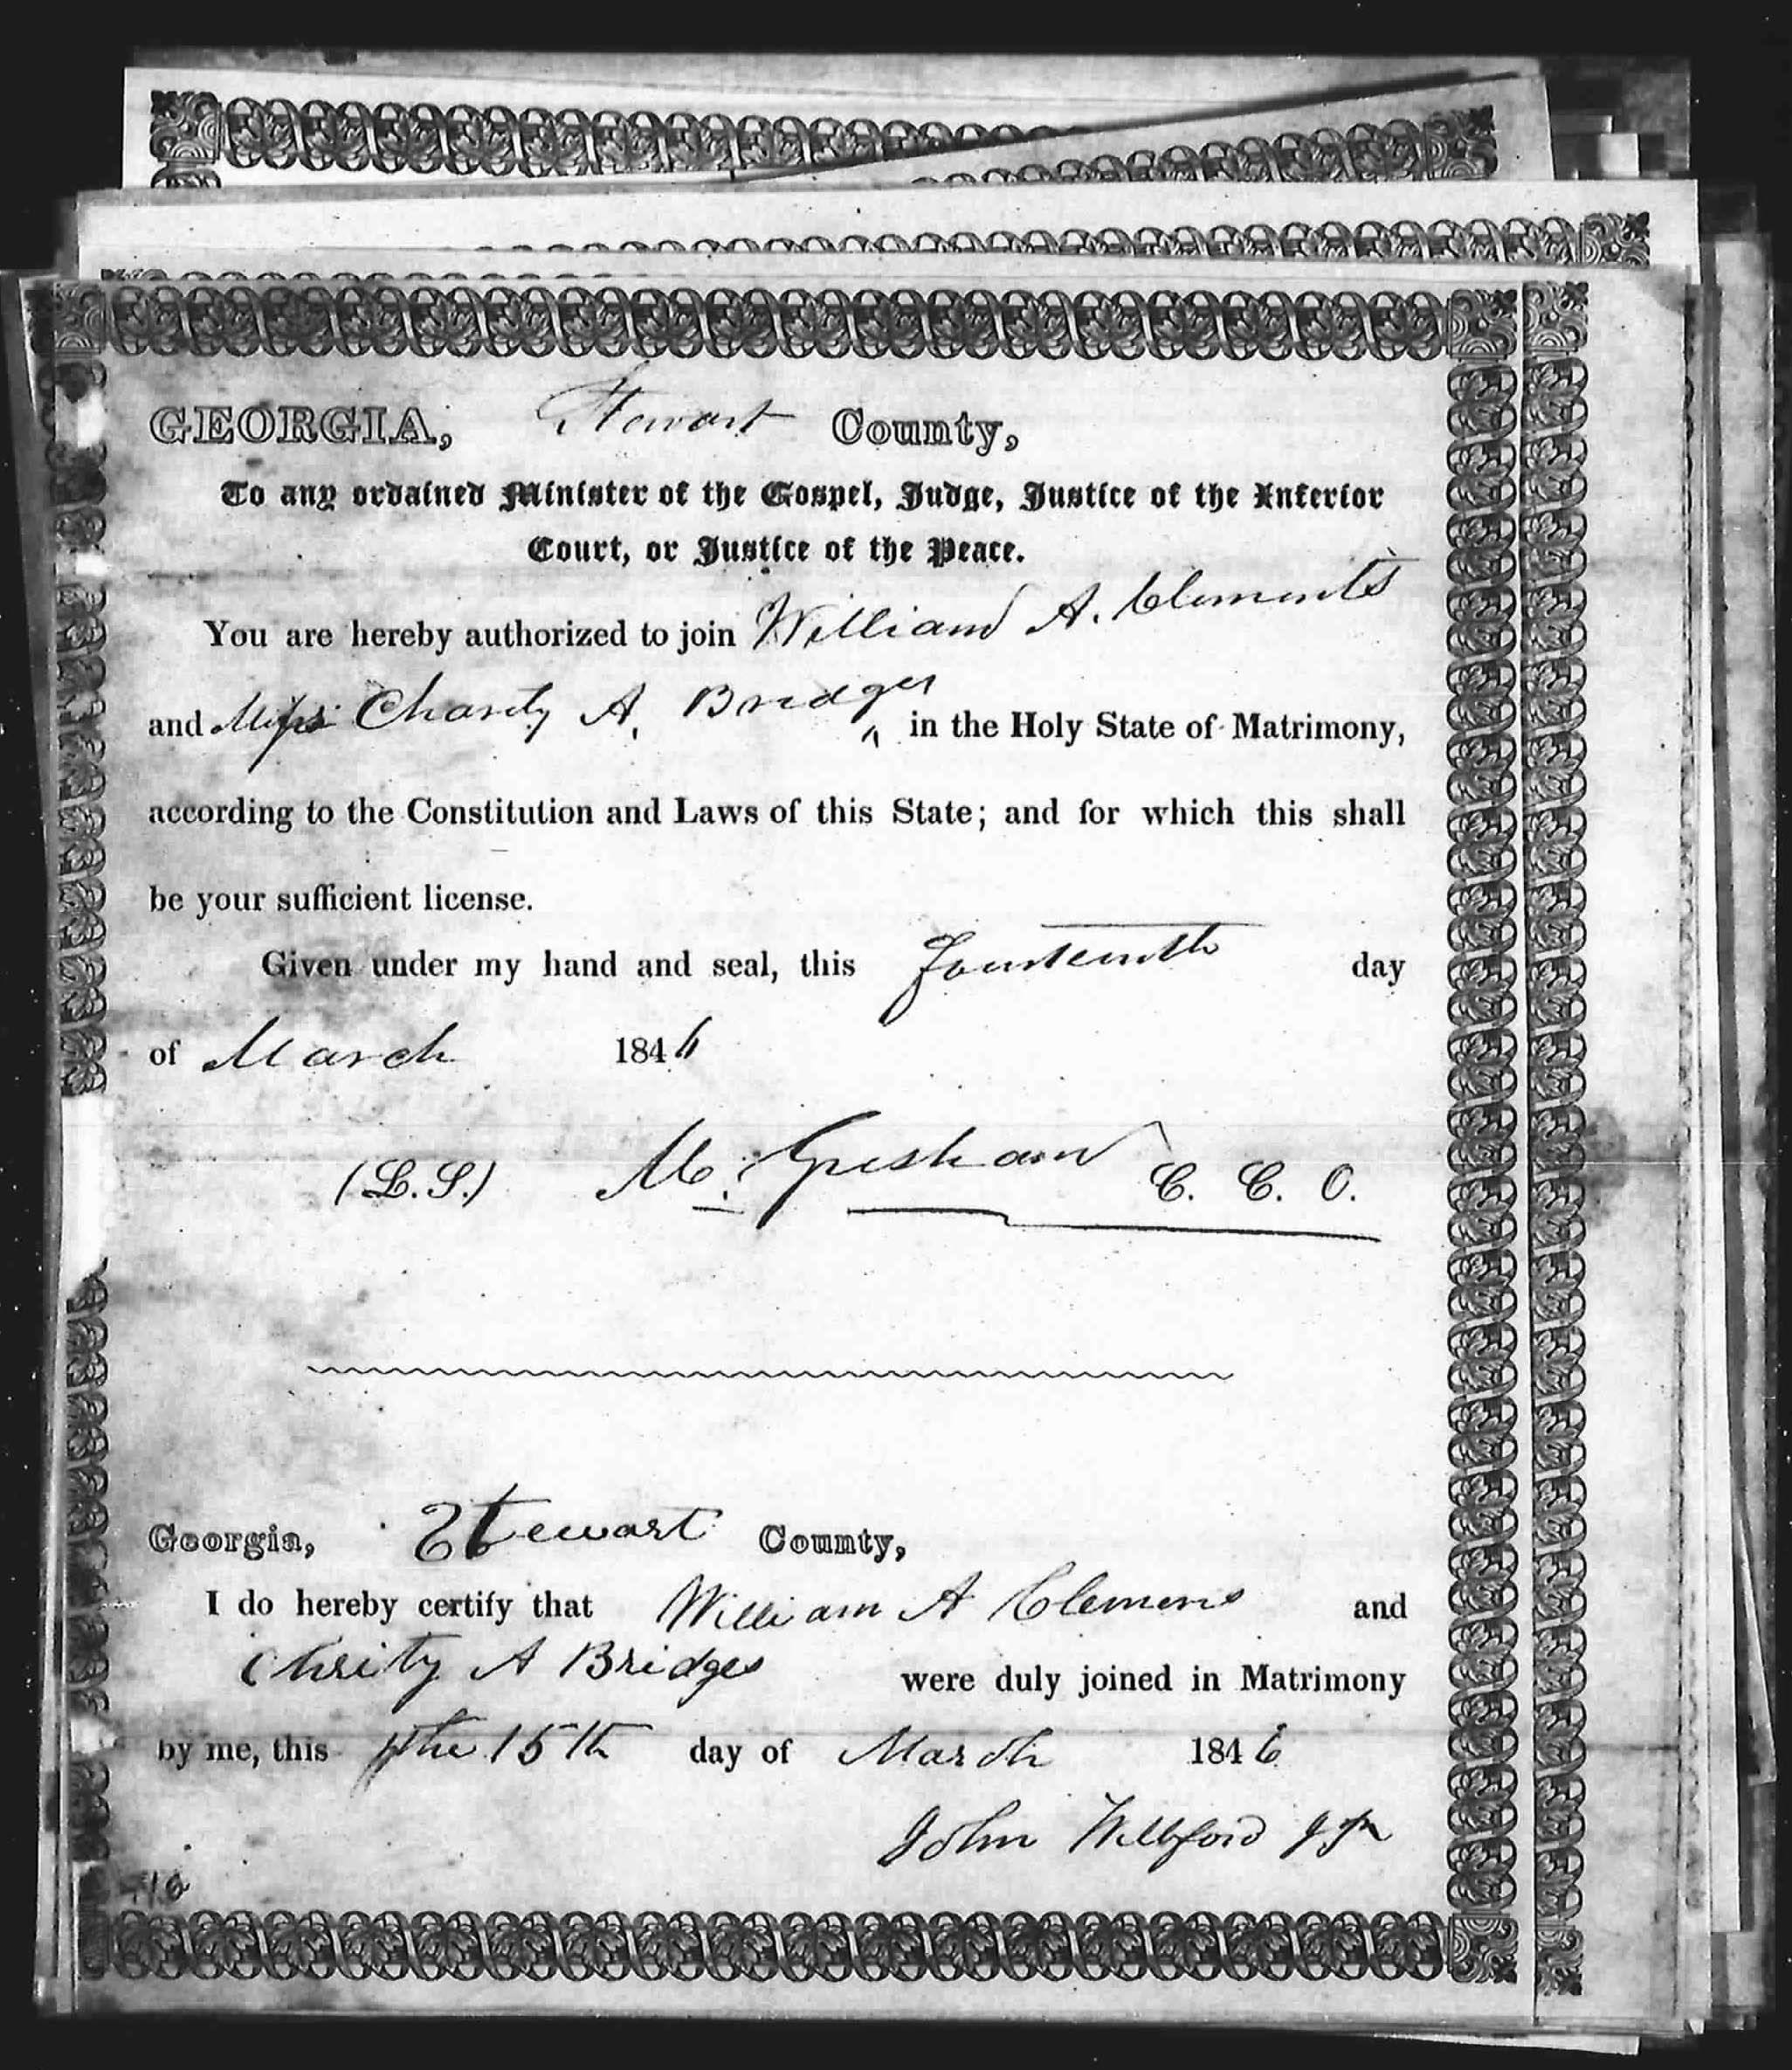 GEORGIA, Stewart County,
To any ordained Minister of the Gospel, Judge, Justice of the Inferior
Court, or Justice of the Peace.
You are hereby authorized to join William A. Clements
and Miss Charity A. Bridges in the Holy State of Matrimony,
according to the Constitution and Laws of this State; and for which this shall
be your sufficient license.
Given under my hand and seal, this Fourteenth day
of March 1846
(L.S.) M. Gresham C. C. O.
Georgia, Stewart County,
I do hereby certify that William A Clemens and
Chrity A Bridges were duly joined in Matrimony
by me, this the 15th day of March 1846
John Wellford